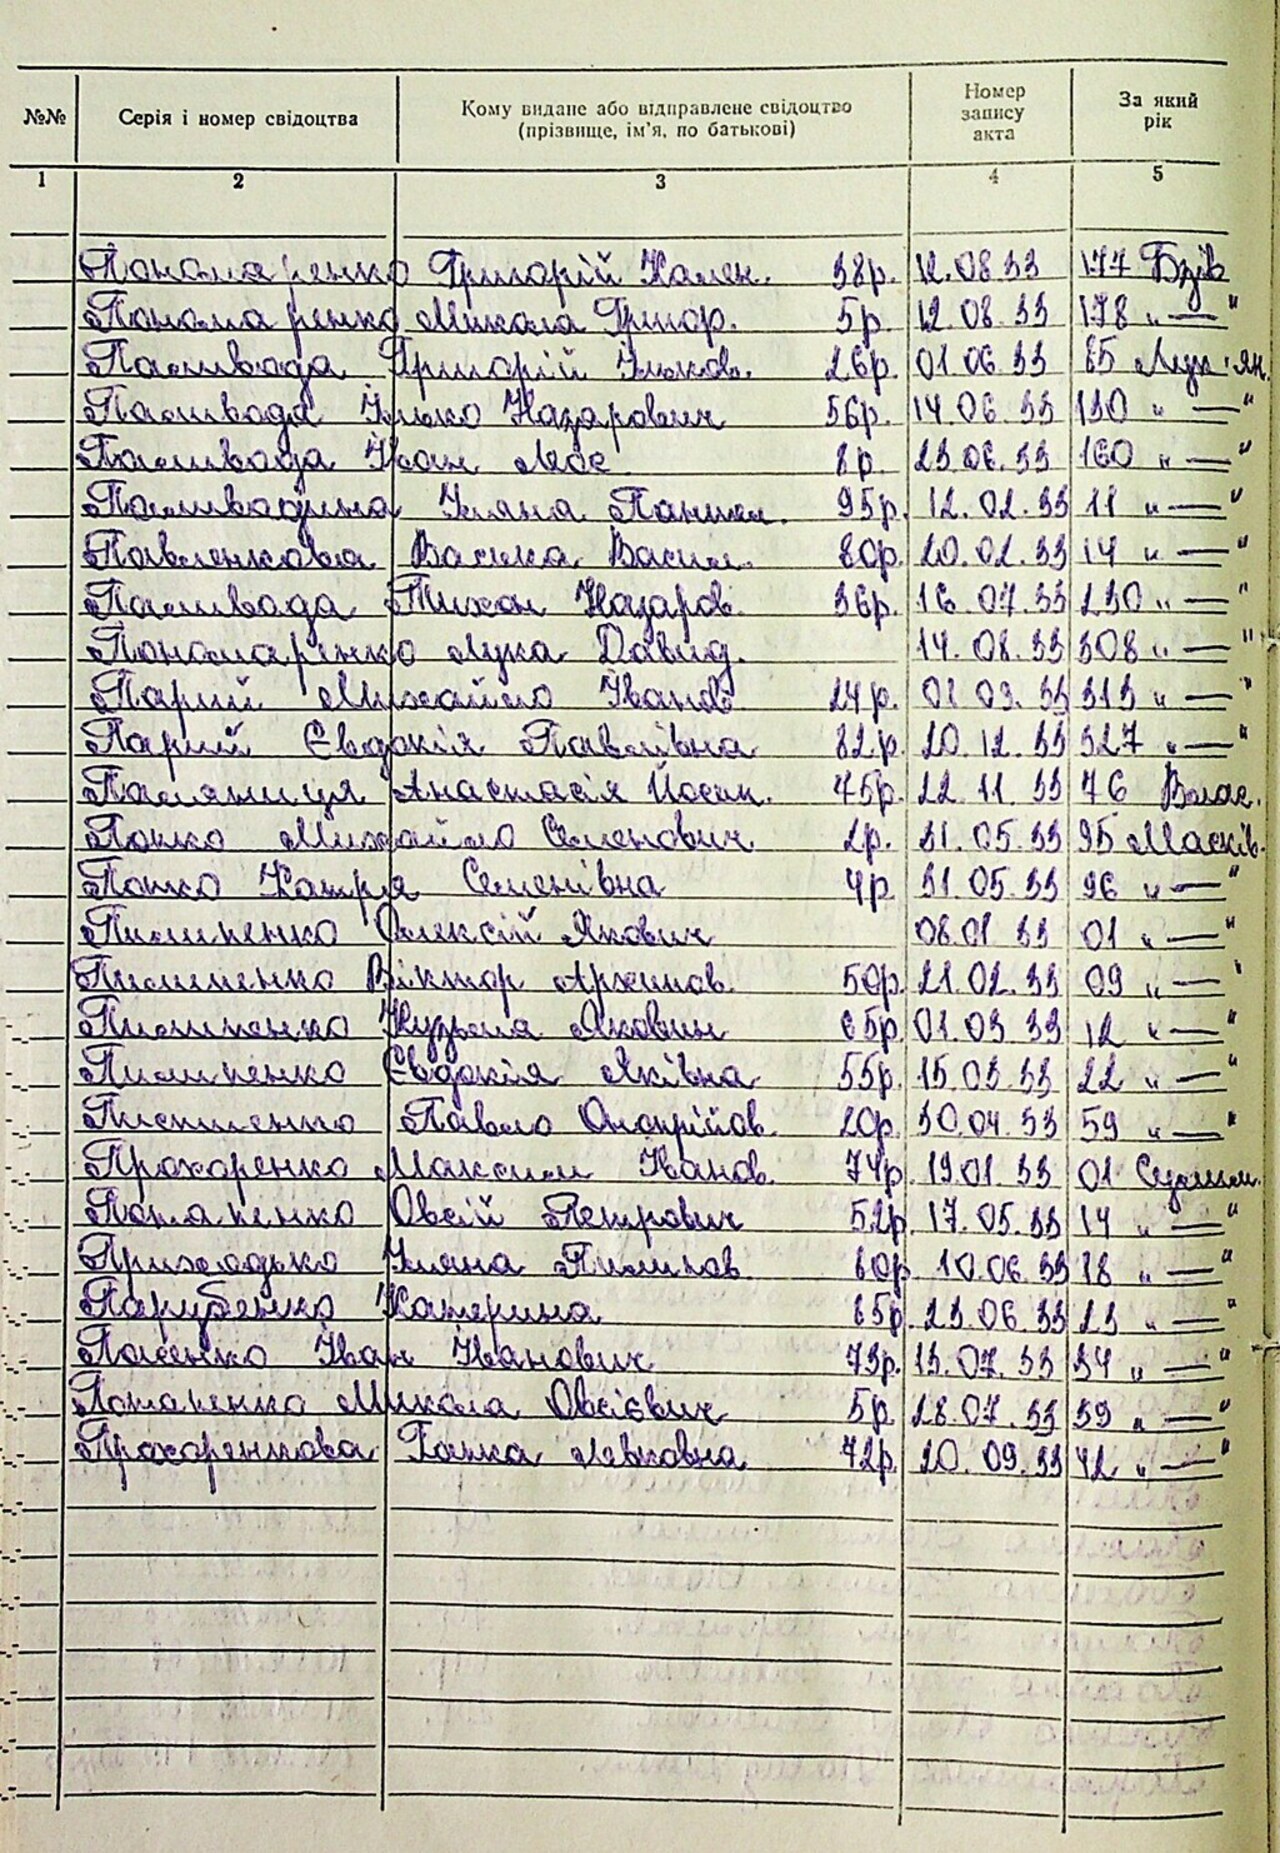 №№ Серія і номер свідоцтва Кому видане або відправлене свідоцтво (прізвище, ім'я, по батькові) Номер запису акта За який рік
1 2 3 4 5
Пономаренко Григорій Камен. 38р. 12.08.33 177 Бзів
Пономаренко Микола Григор. 5р. 12.08.33 178 "—"
Паливода Григорій Ільков. 26р. 01.06.33 85 Лук'ян.
Паливода Ілько Назарович 56р. 14.06.33 130 "—"
Паливода Іван 8р. 23.06.33 160 "—"
Паливодина Уляна 95р. 12.02.33 11 "—"
Павленкова Василина Васил. 80р. 20.02.33 14 "—"
Паливода Тихон Назаров. 36р. 16.07.33 230 "—"
Пономаренко Лука Давид. 14.08.33 308 "—"
Парий Михайло Іванов. 24р. 01.09.33 313 "—"
Парий Євдокія Павлівна 82р. 20.12.33 327 "—"
Паляниця Анастасія Йосип. 75р. 22.11.33 76 Волос.
Попко Михайло Семенович 2р. 31.05.33 95 Масків.
Попко Катря Семенівна 4р. 31.05.33 96 "—"
Пилипенко Олексій Якович 08.01.33 01 "—"
Пилипенко Віктор Архипов. 50р. 21.02.33 09 "—"
Пилипенко Кузьма Якович 65р. 01.03.33 12 "—"
Пилипенко Євдокія Яківна 55р. 15.03.33 22 "—"
Пилипенко Павло Онопрійов. 20р. 30.04.33 59 "—"
Прохоренко Максим Іванов. 74р. 19.01.33 01
Потапенко Овсій Петрович 52р. 17.05.33 14 "—"
Приходько Уляна Пилипов. 60р. 10.06.33 18 "—"
Парубенко Катерина 65р. 23.06.33 23 "—"
Пасенко Іван Іванович 73р. 13.07.33 34 "—"
Потапенко Микола Овсієвич 5р. 28.07.33 39 "—"
Прохоренкова Гапка Левковна 72р. 20.09.33 42 "—"